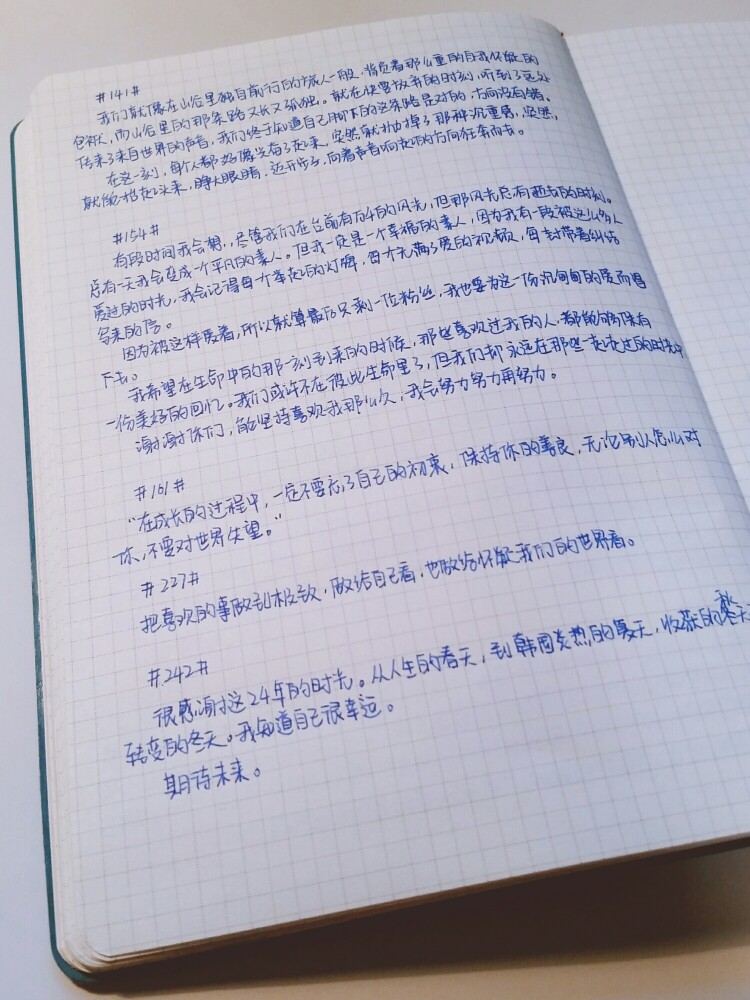 #141#
我们就像在山谷里独自前行的旅人一般,背负着那么重的自我怀疑的
包袱,而山谷里的那条路又长又孤独。就在快要放弃的时刻,听到了远处
传来了来自世界的声音,我们终于知道自己脚下的这条路是对的,方向没有错。
在这一刻,每个人都好像光有了起来,突然就扔掉了那种沉重感,忽然,
就能抬起头来,睁大眼睛,迈开步子,向着声音响起的方向狂奔而去。
#154#
有段时间我会想,尽管我们在台前有万千的风光,但那风光总有逝去的时刻。
总有一天我会变成一个平凡的素人。但我一定是一个幸福的素人,因为我有一段被这么多人
爱过的时光,我会记得每个举起的灯牌,每个充满了爱的视频,每封带着纠结
写来的信。
因为被这样爱着,所以就算最后只剩一位粉丝,我也要为这一份沉甸甸的爱而唱
下去。
我希望在生命中的那一刻到来的时候,那些喜欢过我的人,都能够怀有
一份美好的回忆。我们或许不在彼此生命里了,但我们却永远在那些一起走过的时光中
谢谢你们,能坚持喜欢我那么久,我会努力努力再努力。
#161#
“在成长的过程中,一定不要忘了自己的初衷,保持你的善良,无论别人怎么对
你,不要对世界失望。”
#227#
把喜欢的事做到极致,做给自己看,也做给怀疑我们的世界看。
#242#
很感谢这24年的时光。从人生的春天,到韩国炎热的夏天,收获的秋天
转变的冬天。我知道自己很幸运。
期待未来。